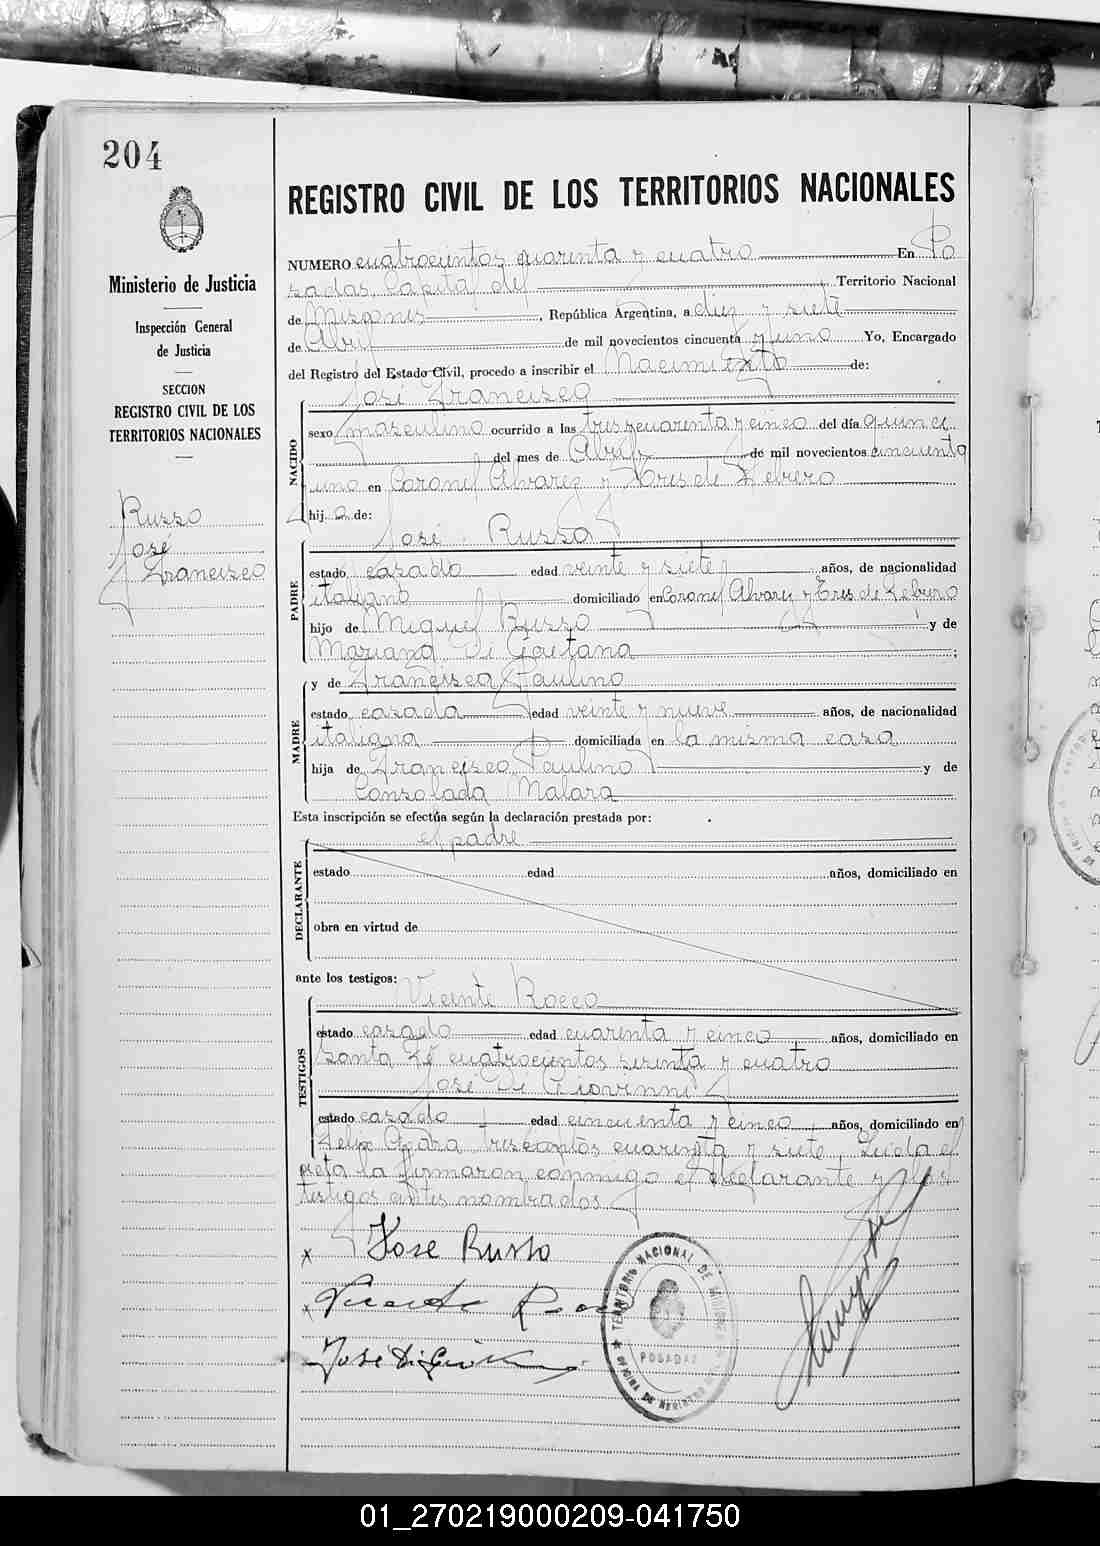 204
Ministerio de Justicia
Inspección General
de Justicia
SECCION
REGISTRO CIVIL DE LOS
TERRITORIOS NACIONALES
Russo
José
Francisco
REGISTRO CIVIL DE LOS TERRITORIOS NACIONALES
NUMERO cuatrocientos cuarenta y cuatro En Po
sadas Capital del Territorio Nacional
de Misiones, República Argentina, a diez y siete
de Abril de mil novecientos cincuenta y uno Yo, Encargado
del Registro del Estado Civil, procedo a inscribir el Nacimiento de:
José Francisco
NACIDO
sexo masculino ocurrido a las tres y cuarenta y cinco del día quince
del mes de Abril de mil novecientos cincuenta
uno en Coronel Alvarez y Tres de Febrero
hijo de:
José Russo
PADRE
estado casado edad veinte y siete años, de nacionalidad
italiano domiciliado en Coronel Alvarez y Tres de Febrero
hijo de Miguel Russo y de
Mariana Di Gaetana;
y de Francisca Paulino
MADRE
estado casada edad veinte y nueve años, de nacionalidad
italiana domiciliada en la misma casa
hija de Francisco Paulino y de
Consolada Malara
Esta inscripción se efectúa según la declaración prestada por:
el padre
DECLARANTE
estado edad años, domiciliado en
obra en virtud de
ante los testigos:
Vicente Rocco
TESTIGOS
estado casado edad cuarenta y cinco años, domiciliado en
Santa Fé cuatrocientos setenta y cuatro
José Di Giovanni
estado casado edad cincuenta y cinco años, domiciliado en
Felix trescientos cuarenta y siete. Leida el
acta la firmaron conmigo el declarante y los
testigos antes nombrados
x Jose Russo
x
José Di
TERRITORIO NACIONAL DE MISIONES
POSADAS
OFICINA DE REGISTRO
01_270219000209-041750